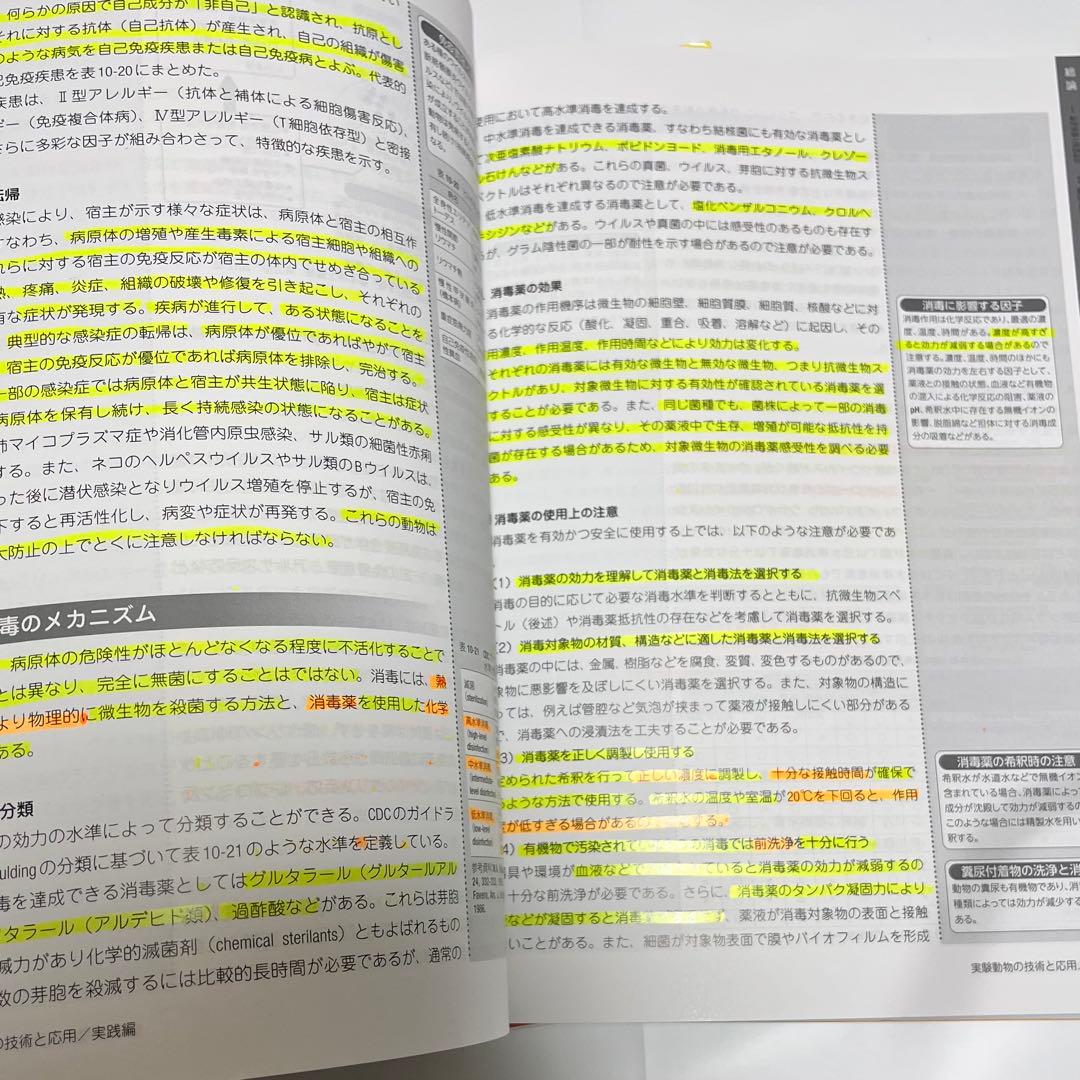 何らかの原因で自己成分が「非自己」と認識され、抗原とし
それに対する抗体（自己抗体）が産生され、自己の組織が傷害
のような病気を自己免疫疾患または自己免疫病とよぶ。代表的
己免疫疾患を表10-20にまとめた。
疾患は、Ⅱ型アレルギー（抗体と補体による細胞傷害反応）、
ギー（免疫複合体病）、Ⅳ型アレルギー（T細胞依存型）と密接
さらに多彩な因子が組み合わさって、特徴的な疾患を示す。
転帰
感染により、宿主が示す様々な症状は、病原体と宿主の相互作
すなわち、病原体の増殖や産生毒素による宿主細胞や組織への
れらに対する宿主の免疫反応が宿主の体内でせめぎ合っている
熱、疼痛、炎症、組織の破壊や修復を引き起こし、それぞれの
有な症状が発現する。疾病が進行して、ある状態になることを
典型的な感染症の転帰は、病原体が優位であればやがて宿主
宿主の免疫反応が優位であれば病原体を排除し、完治する。
一部の感染症では病原体と宿主が共生状態に陥り、宿主は症状
病原体を保有し続け、長く持続感染の状態になることがある。
肺マイコプラズマ症や消化管内原虫感染、サル類の細菌性赤痢
する。また、ネコのヘルペスウイルスやサル類のBウイルスは、
った後に潜伏感染となりウイルス増殖を停止するが、宿主の免
下すると再活性化し、病変や症状が再発する。これらの動物は
大防止の上でとくに注意しなければならない。
毒のメカニズム
病原体の危険性がほとんどなくなる程度に不活化することで
とは異なり、完全に無菌にすることではない。消毒には、熱
より物理的に微生物を殺菌する方法と、消毒薬を使用した化学
ある。
分類
の効力の水準によって分類することができる。CDCのガイドラ
uldingの分類に基づいて表10-21のような水準を定義している。
毒を達成できる消毒薬としてはグルタラール（グルタールアル
タラール（アルデヒド類）、過酢酸などがある。これらは芽胞
滅力があり化学的滅菌剤（chemical sterilants）ともよばれるもの
数の芽胞を殺滅するには比較的長時間が必要であるが、通常の
の技術と応用／実践編
表 10-21 CDC
滅菌
(sterilization)
高水準消毒
(high-level
disinfection)
中水準消毒
(intermediate-
level disinfect
低水準消毒
(low-level
disinfection)
使用において高水準消毒を達成する。
中水準消毒を達成できる消毒薬、すなわち結核菌にも有効な消毒薬とし
て次亜塩素酸ナトリウム、ポビドンヨード、消毒用エタノール、クレゾー
ル石けんなどがある。これらの真菌、ウイルス、芽胞に対する抗微生物ス
ペクトルはそれぞれ異なるので注意が必要である。
低水準消毒を達成する消毒薬として、塩化ベンザルコニウム、クロルヘ
キシジンなどがある。ウイルスや真菌の中には感受性のあるものも存在す
が、グラム陰性菌の一部が耐性を示す場合があるので注意が必要である。
消毒薬の効果
消毒薬の作用機序は微生物の細胞壁、細胞質膜、細胞質、核酸などに対
る化学的な反応（酸化、凝固、重合、吸着、溶解など）に起因し、その
用濃度、作用温度、作用時間などにより効力は変化する。
それぞれの消毒薬には有効な微生物と無効な微生物、つまり抗微生物ス
クトルがあり、対象微生物に対する有効性が確認されている消毒薬を選
することが必要である。また、同じ菌種でも、菌株によって一部の消毒
に対する感受性が異なり、その薬液中で生存、増殖が可能な抵抗性を持
菌が存在する場合があるため、対象微生物の消毒薬感受性を調べる必要
ある。
消毒薬の使用上の注意
消毒薬を有効かつ安全に使用する上では、以下のような注意が必要であ
（1）消毒薬の効力を理解して消毒薬と消毒法を選択する
消毒の目的に応じて必要な消毒水準を判断するとともに、抗微生物スペ
トル（後述）や消毒薬抵抗性の存在などを考慮して消毒薬を選択する。
（2）消毒対象物の材質、構造などに適した消毒薬と消毒法を選択する
消毒薬の中には、金属、樹脂などを腐食、変質、変色するものがあるので、
象物に悪影響を及ぼしにくい消毒薬を選択する。また、対象物の構造に
っては、例えば管腔など気泡が挟まって薬液が接触しにくい部分がある
で、消毒薬への浸漬法を工夫することが必要である。
（3）消毒薬を正しく調製し使用する
定められた希釈を行って正しい濃度に調製し、十分な接触時間が確保で
ような方法で使用する。希釈水の温度や室温が20℃を下回ると、作用
が低すぎる場合があるの
4）有機物で汚染されて の消毒では前洗浄を十分に行う
具や環境が血液などで ていると消毒薬の効力が減弱するの
十分な前洗浄が必要である。さらに、消毒薬のタンパク凝固力により
などが凝固すると消毒 、薬液が消毒対象物の表面と接触
いことがある。また、細菌が対象物表面で膜やバイオフィルムを形成
総論
消毒に影響する因子
消毒作用は化学反応であり、最適の濃
度、温度、時間がある。濃度が高すぎ
ると効力が減弱する場合があるので
注意する。濃度、温度、時間のほかにも
消毒薬の効力を左右する因子として、
薬液との接触の状態、血液など有機物
の混入による化学反応の阻害、薬液の
pH、希釈水中に存在する無機イオンの
影響、脱脂綿など担体に対する消毒成
分の吸着などがある。
消毒薬の希釈時の注意
希釈水が水道水などで無機イオ
含まれている場合、消毒薬によっ
成分が沈殿して効力が減弱する
このような場合には精製水を用い
釈する。
糞尿付着物の洗浄と消
動物の糞尿も有機物であり、消
種類によっては効力が減少する
ある。
実験動物の技術と応用